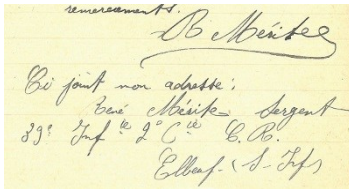 remerciements.
R Mérite
Ci joint mon adresse :
René Mérite Sergent
39e Infie 2e Cie C. R.
Elbeuf (S-Inf)